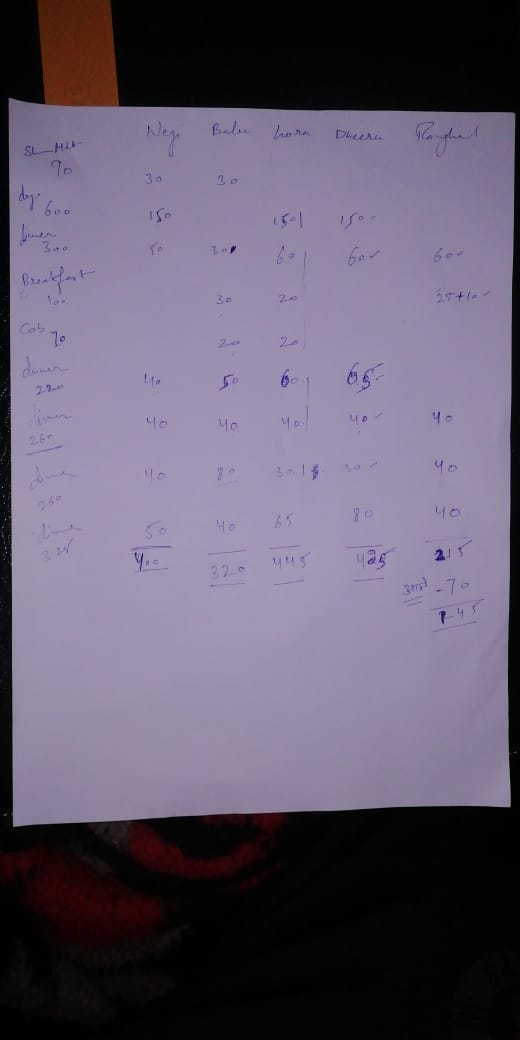 Negi Balu hora Dheeru
90
30 30
600
150 150 150
300
50 30 60 60 60
Breakfast
100
30 20 25+10
Cab 70
20 20
dinner
220
40 50 60 65
dinner
260
40 40 40 40 40
260
40 80 30 30 40
325
50 40 65 80 40
400 320 445 425 215
-70
145